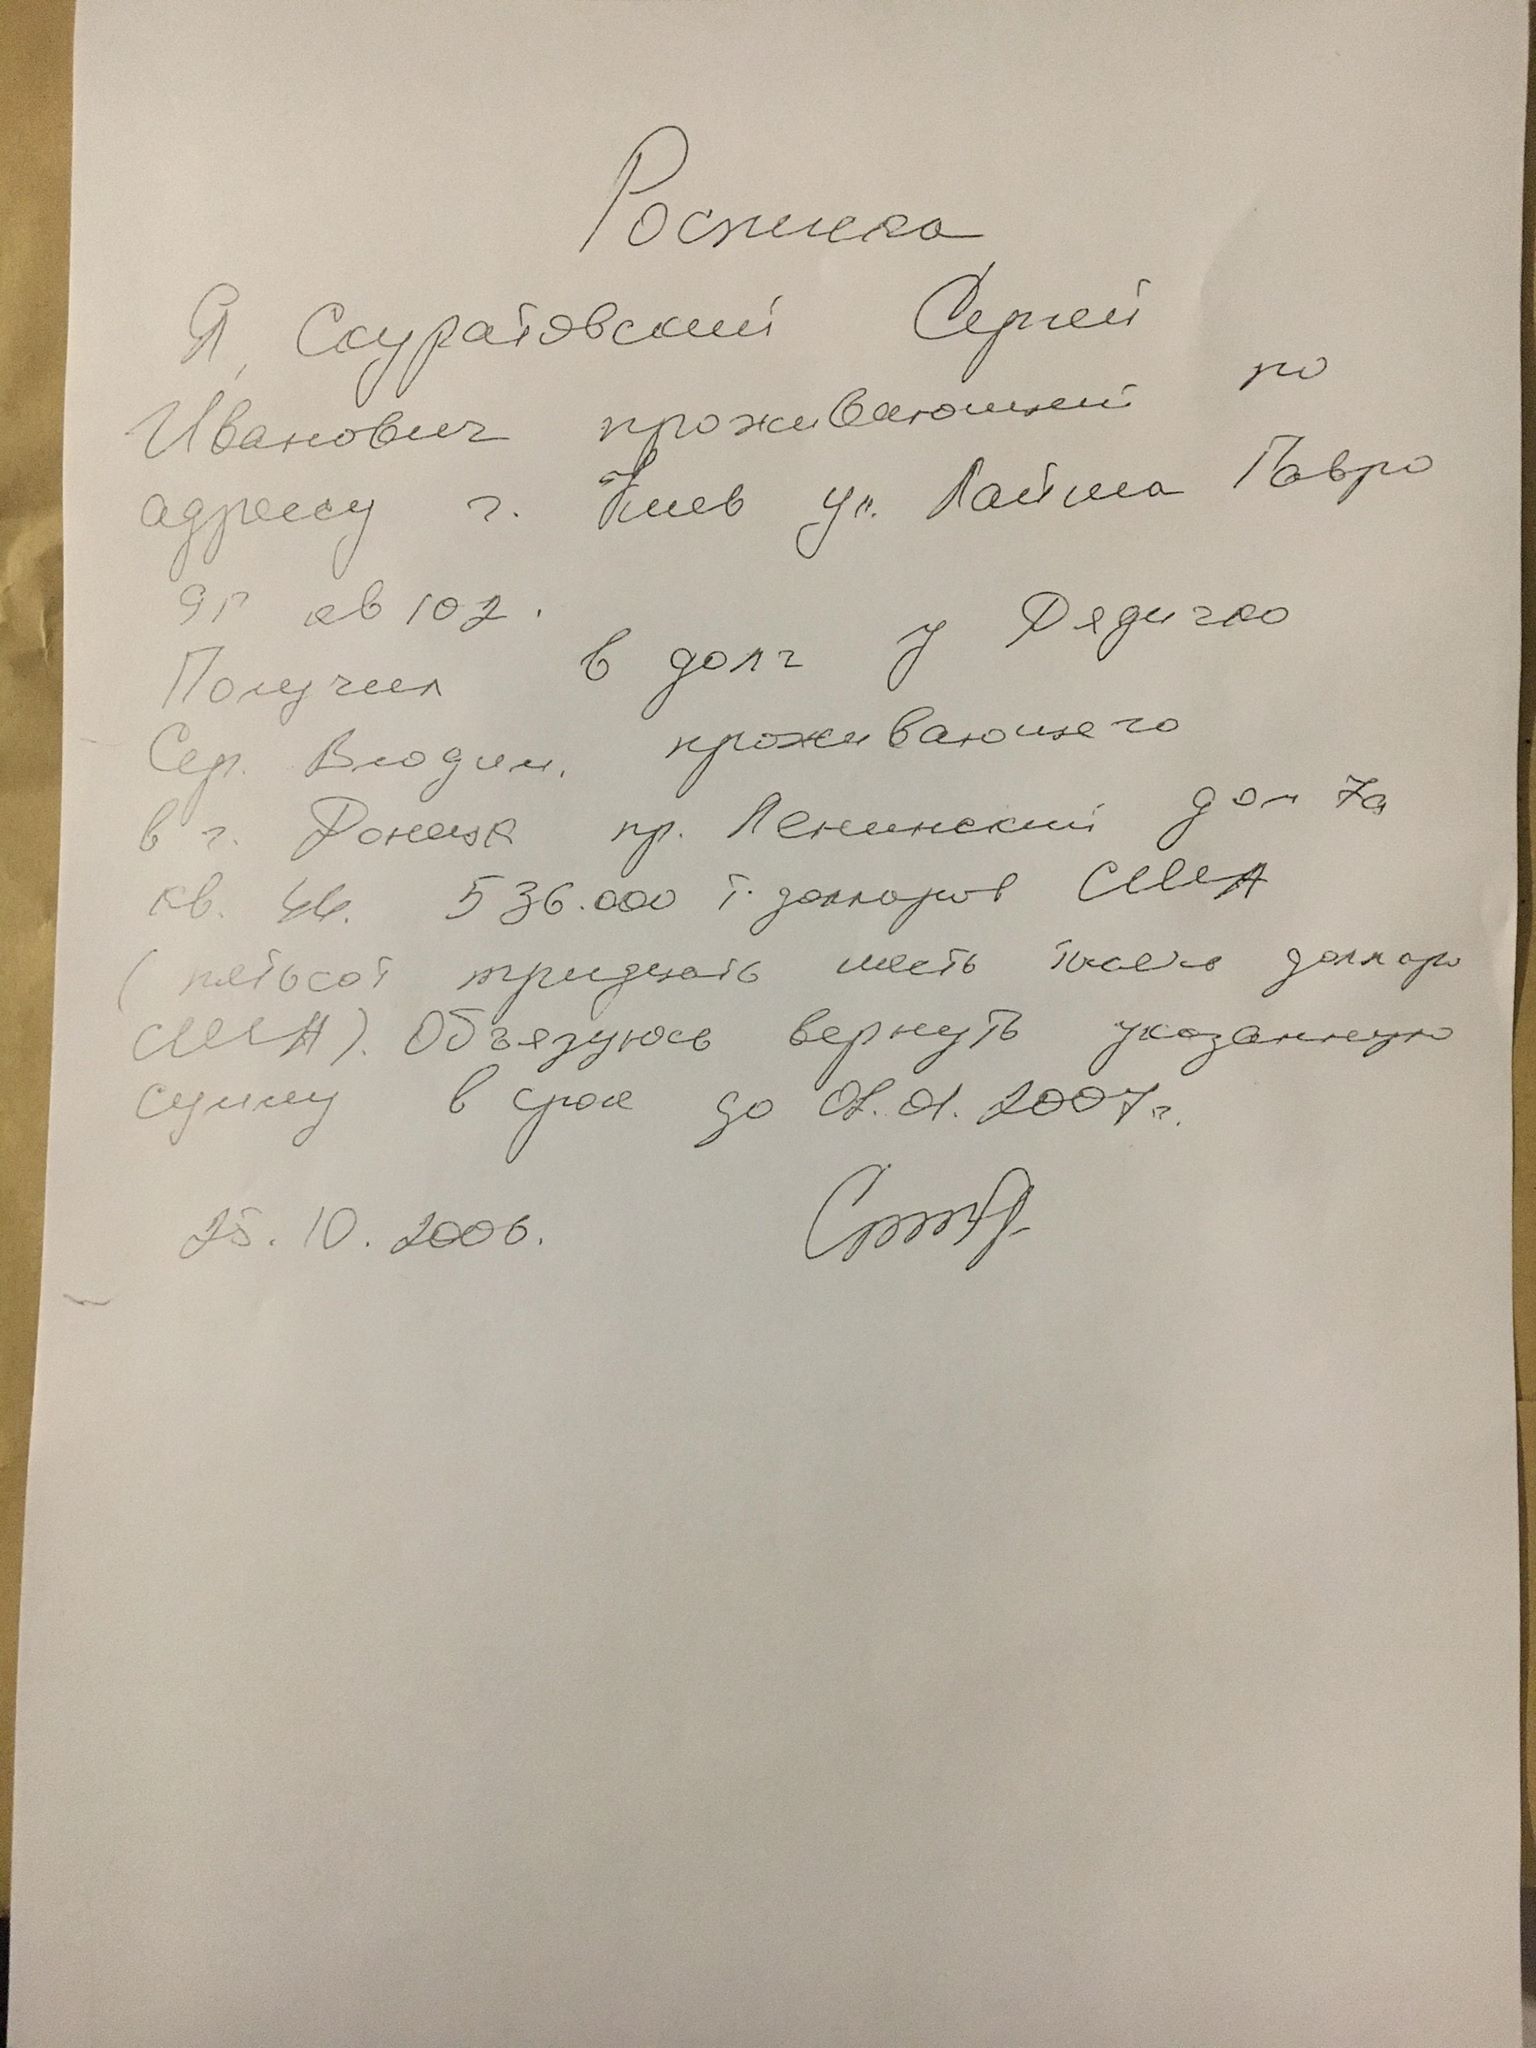 Росписка
Я, Скуратовский Сергей
Иванович проживающий по
адресу г. Киев ул. Лайоша Гавро
9г кв 102.
Получил в долг у Дядичко
Сер. Влодим. проживающего
в г. Донецк пр. Ленинский дом 7а
кв. 44. 536.000 т. долларов США
(пятьсот тридцать шесть тысяч доллар
США). Объязуюсь вернуть указанную
сумму в срок до 01.01.2007г.
25.10.2006.